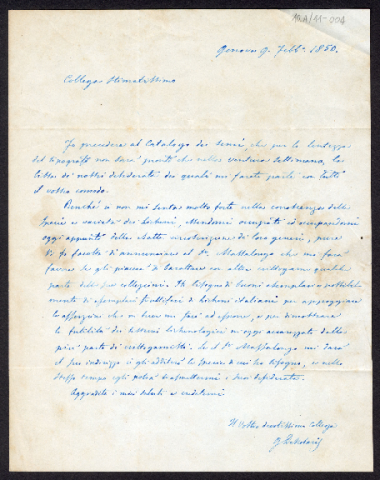 10.A/11-004
Genova 9. Febb. 1850.
Collega Stimatissimo
Fo precedere al Catalogo dei semi, che per la lentezza
del tipografo non sarà pronto che nella ventura settimana, la
lista de' nostri desiderata dei quali mi farete parte con tutto
il vostro comodo.
Benchè io non mi senta molto forte nella conoscenza delle
specie e varietà dei licheni,
oggi appunto della esatta circoscrizione di loro generi, pure
Vi fo facoltà di annunziare al Sr. Massalongo che mi farà
favore se gli piaccia di barattare con altre crittogame qualche
parte delle sue collezioni. Ho bisogno di buoni esemplari e
mente di esemplari fruttiferi di licheni italiani per appoggiare
le che in breve mi farò ad esporre, e per dimostrare
la futilità dei sistemi lichenologici in oggi accarezzati dalla
più parte di crittogamisti. Se il Sr. Massalongo mi darà
il suo indirizzo io gli additerò le specie di cui ho bisogno, e nello
stesso tempo egli potrà trasmettermi i suoi desiderata.
Aggradite i miei saluti e credetemi
Il Vostro devotissimo Collega
G. De Notaris